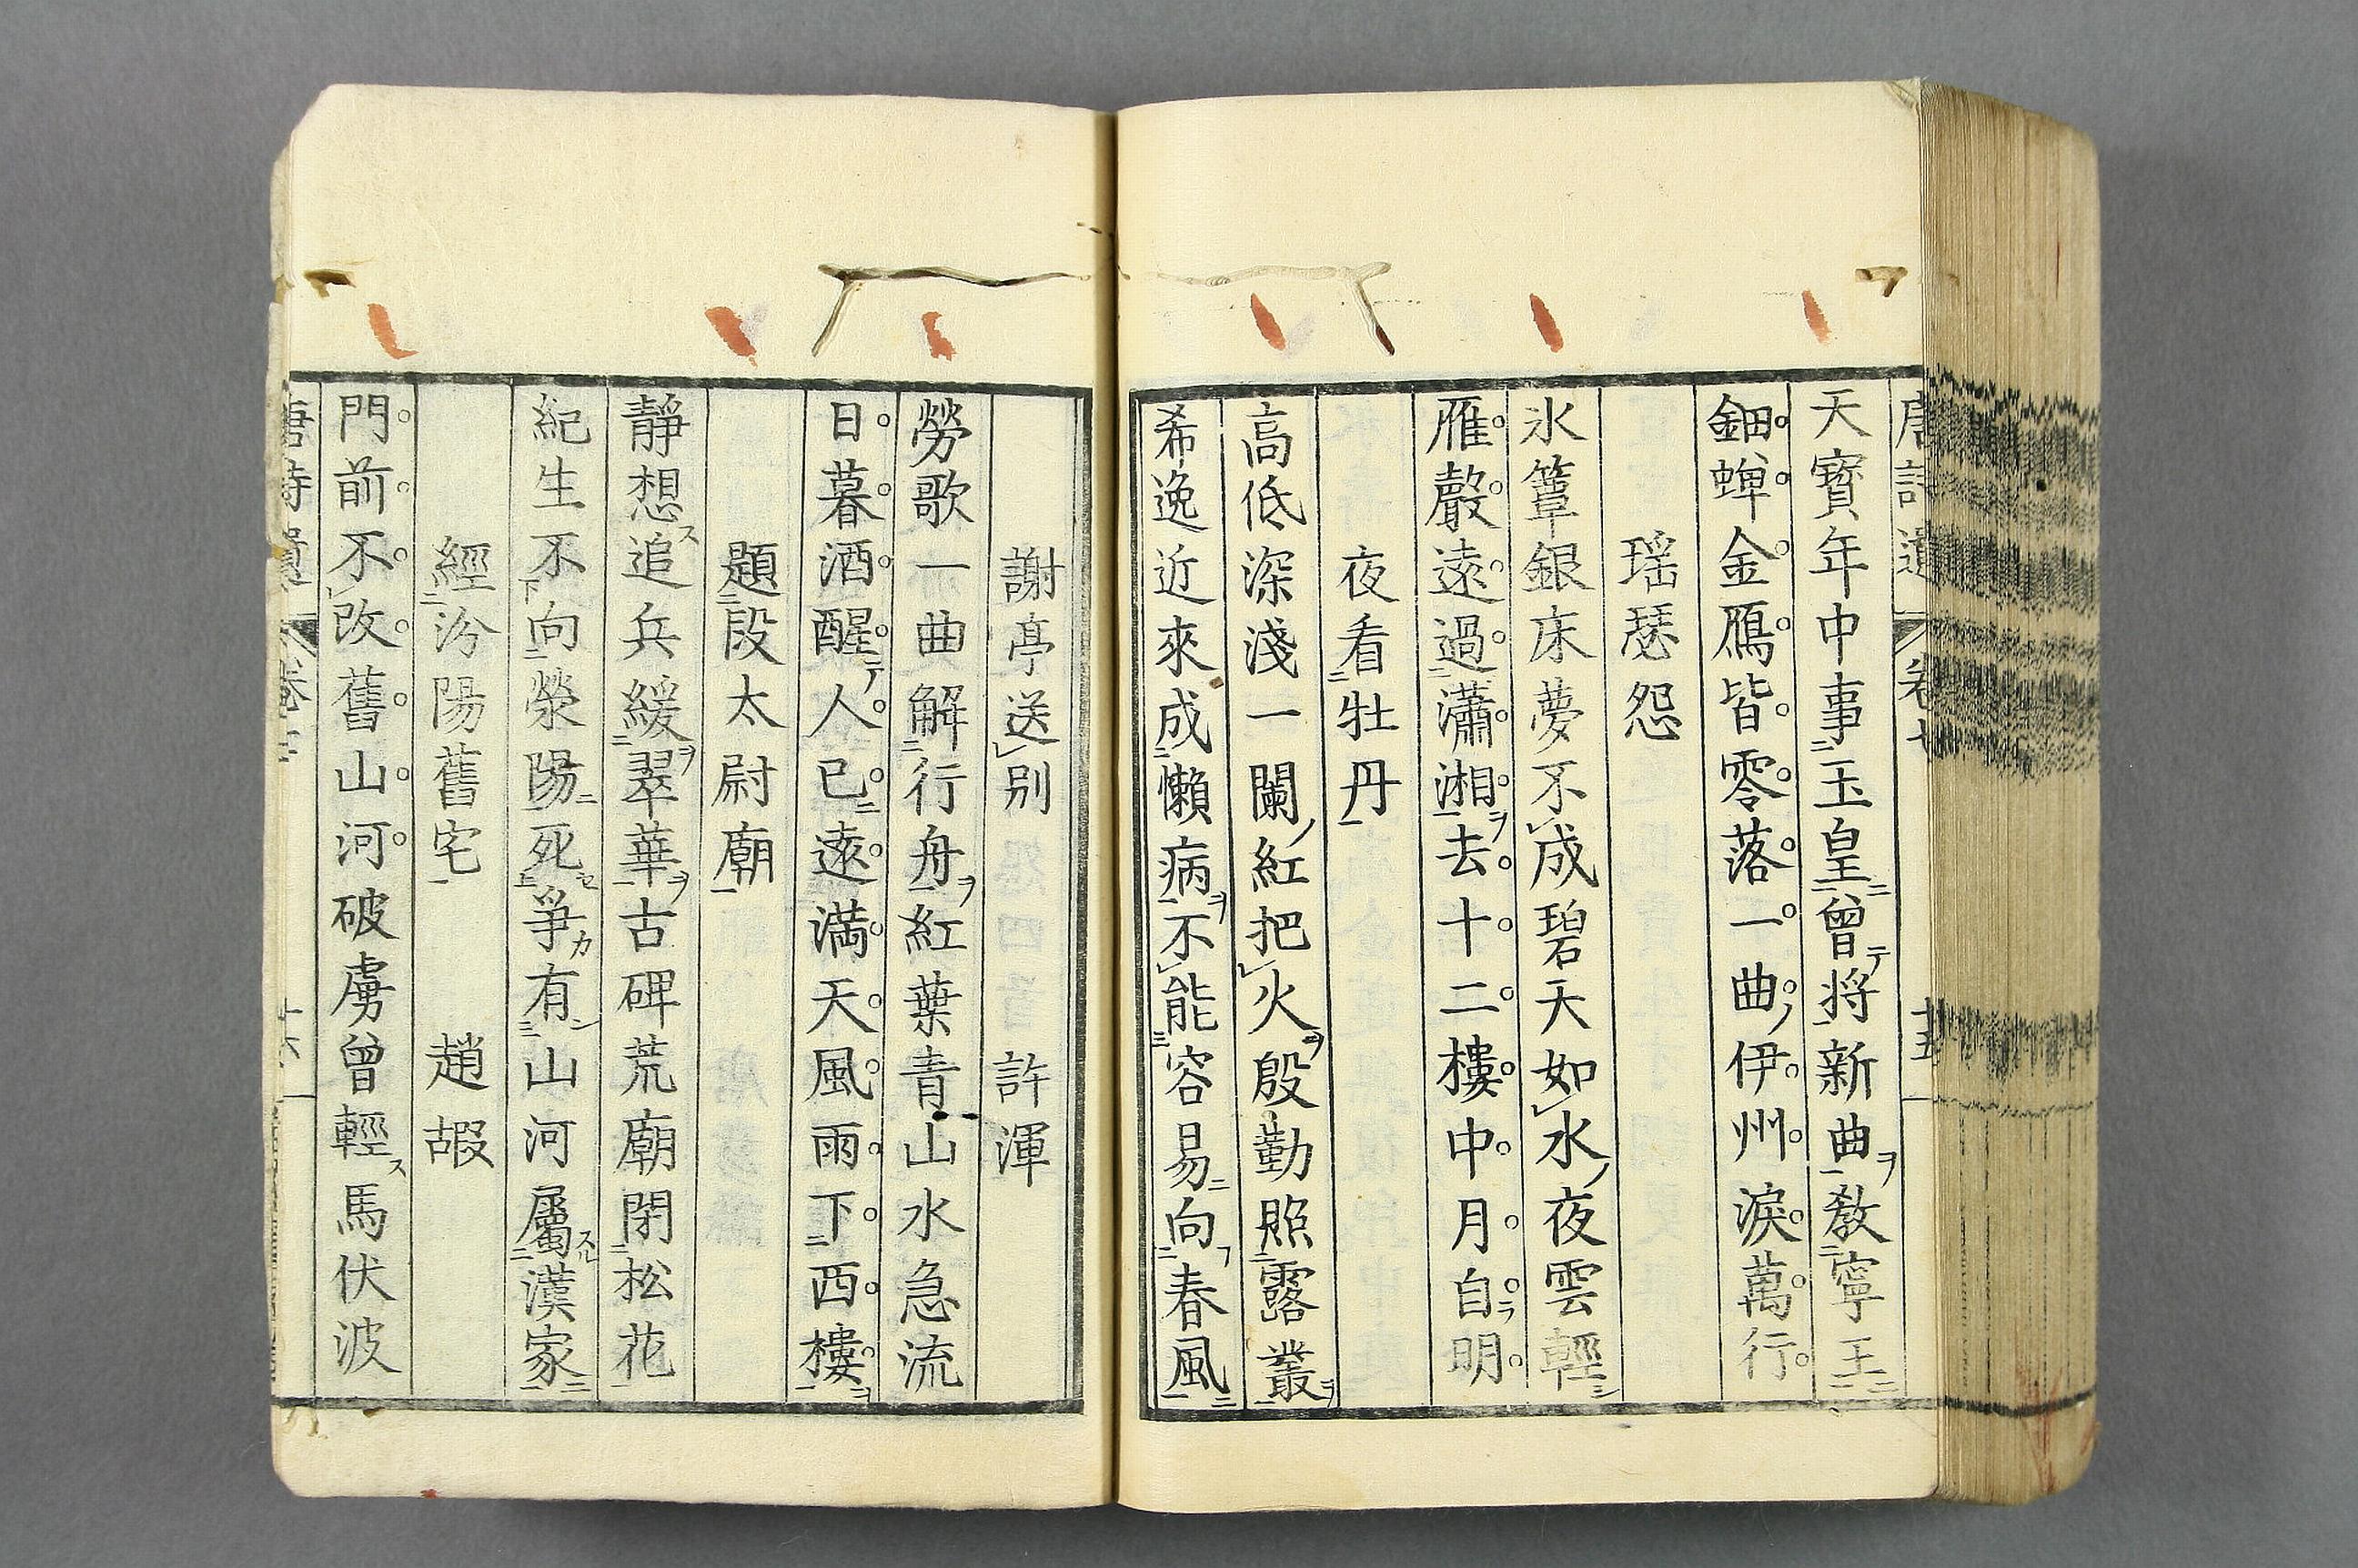 天寶年中事玉皇曾將新曲敎寧王
鈿蟬金鴈皆零落一曲伊州淚萬行
瑶瑟怨
氷簟銀床夢不成碧天如水夜雲輕
雁聲遠過瀟湘去十二樓中月自明
夜看牡丹
高低深淺一闌紅把火殷勤照露叢
希逸近來成懶病不能容易向春風
謝亭送別 許渾
勞歌一曲解行舟紅葉青山水急流
日暮酒醒人已遠滿天風雨下西樓
題段太尉廟
靜想追兵緩翠華古碑荒廟閉松花
紀生不向滎陽死爭有山河屬漢家
經汾陽舊宅 趙嘏
門前不改舊山河破虜曾輕馬伏波